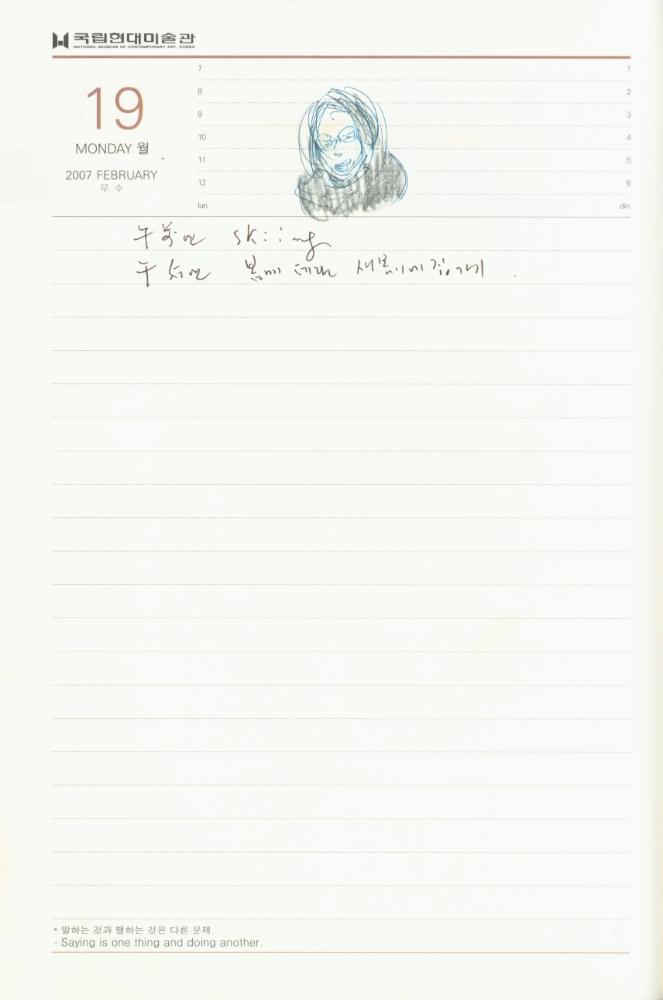 국립현대미술관
NATIONAL MUSEUM OF CONTEMPORARY ART, KOREA
19
MONDAY 월
2007 FEBRUARY
우 수
7
8
9
10
11
12
lun
1
2
3
4
5
6
din
skiing
* 말하는 것과 행하는 것은 다른 문제.
- Saying is one thing and doing another.